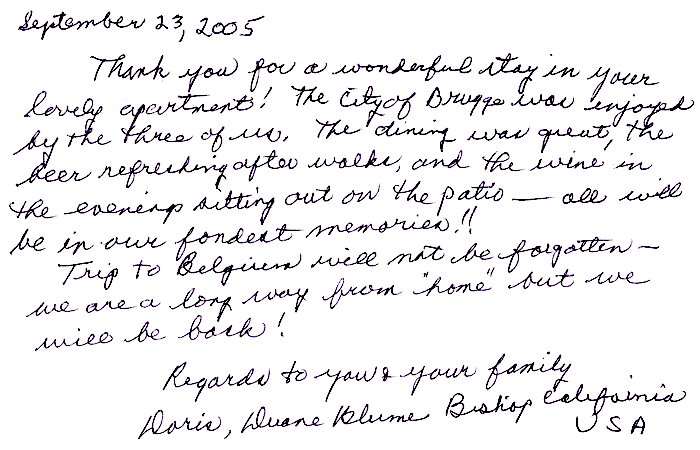 September 23, 2005
Thank you for a wonderful stay in your
lovely apartment! The City of Brugge was enjoyed
by the three of us. The dining was great, the
beer refreshing after walks, and the wine in
the evenings sitting out on the patio — all will
be in our fondest memories!!
Trip to Belgium will not be forgotten —
we are a long way from "home" but we
will be back!
Regards to you & your family
Doris, Duane Blume Bishop California
USA